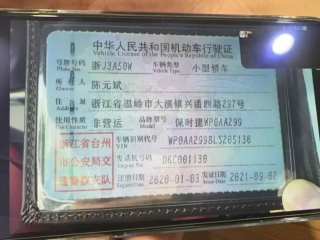 中华人民共和国机动车行驶证
Vehicle License of the People's Republic of China
号牌号码 浙J3A50W 车辆类型 小型轿车
Plate No. Vehicle Type
所有人 陈元斌
Owner
住址 浙江省温岭市大溪镇兴潘西路297号
Address
使用性质 非营运 品牌型号 保时捷WP0AA299
Use Character Model
浙江省台州
市公安局交
通警察支队
车辆识别代号 WP0AA299BLS205136
VIN
发动机号码 DKC001130
Engine No.
注册日期 2020-01-03 发证日期 2021-09-02
Register Date Issue Date